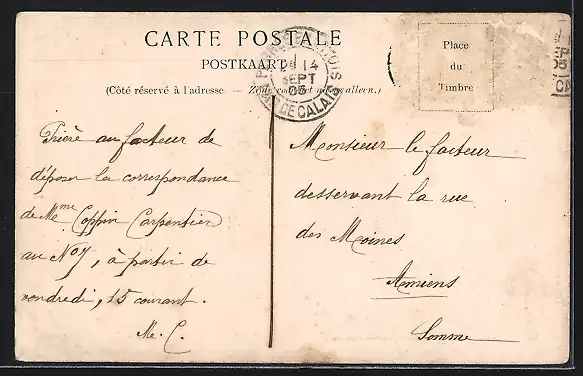 CARTE POSTALE
POSTKAART
(Côté réservé à l'adresse
Place
du
Timbre
14
SEPT
05
DE CALAIS
Prière au facteur de
déposer la correspondance
de Mme Coppin Carpentier
au No 7, à partir de
vendredi, 15 courant.
M. C.
Monsieur le facteur
desservant la rue
des Moines
Amiens
Somme